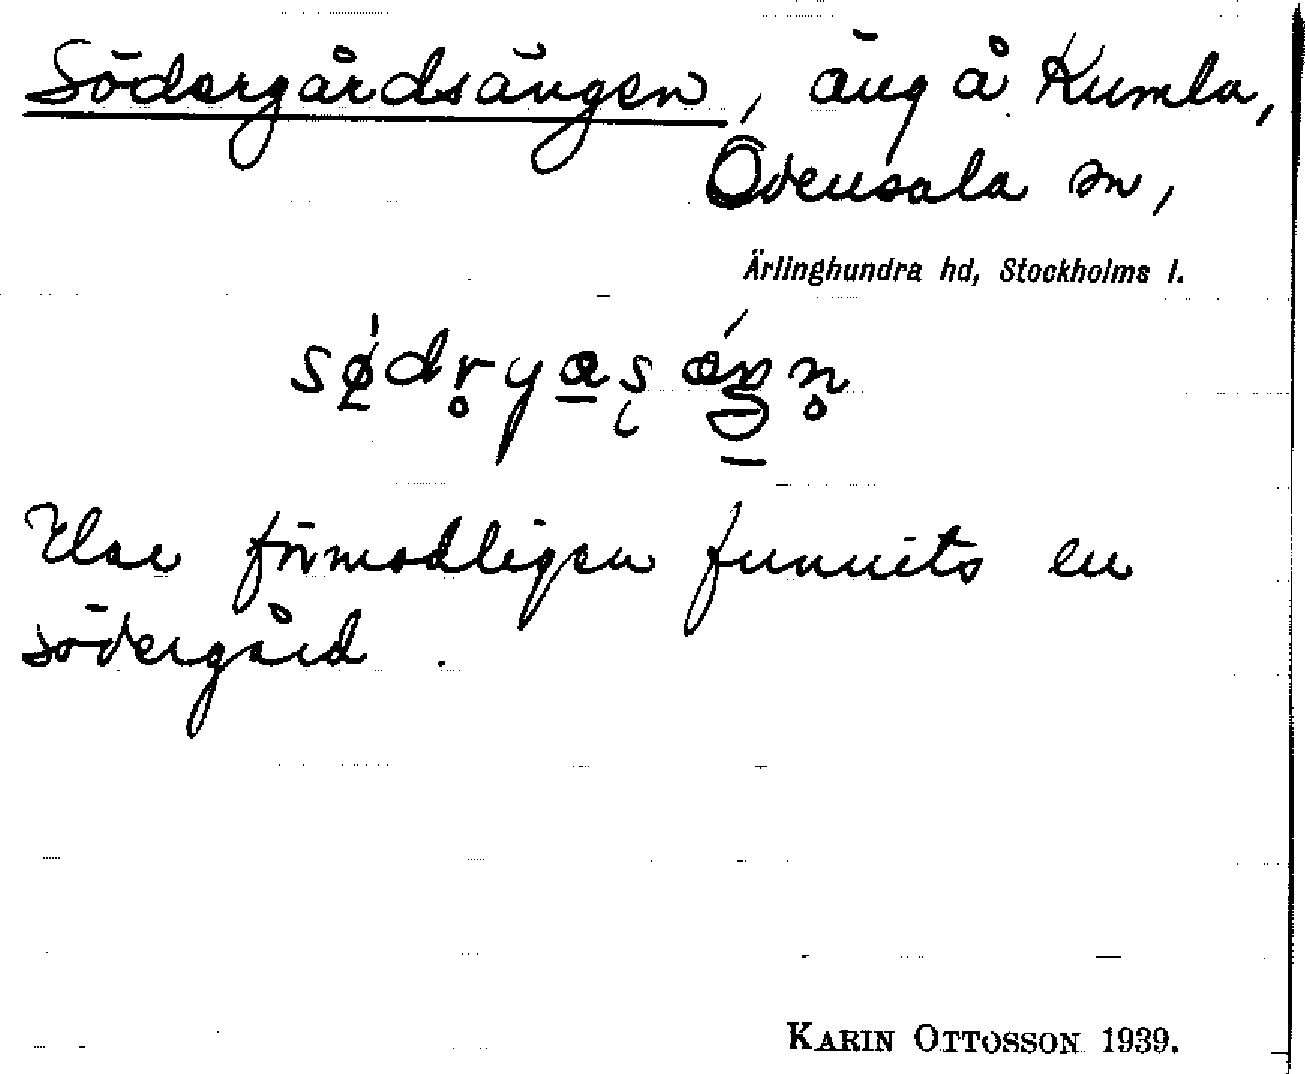 Södergårdsängen, äng å Kumla,
Odensala sn,
Ärlinghundra hd, Stockholms l.
förmodligen funnits en
södergård.
KARIN OTTOSSON 1939.